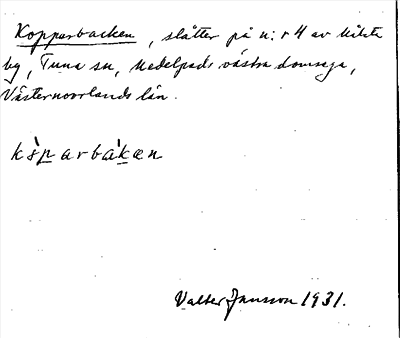 Kopparbacken, slåtter på n:r 4 av
by, Tuna sn, Medelpads västra domsaga,
Västernorrlands län.
kòparbàkæn
Valter Jansson 1931.